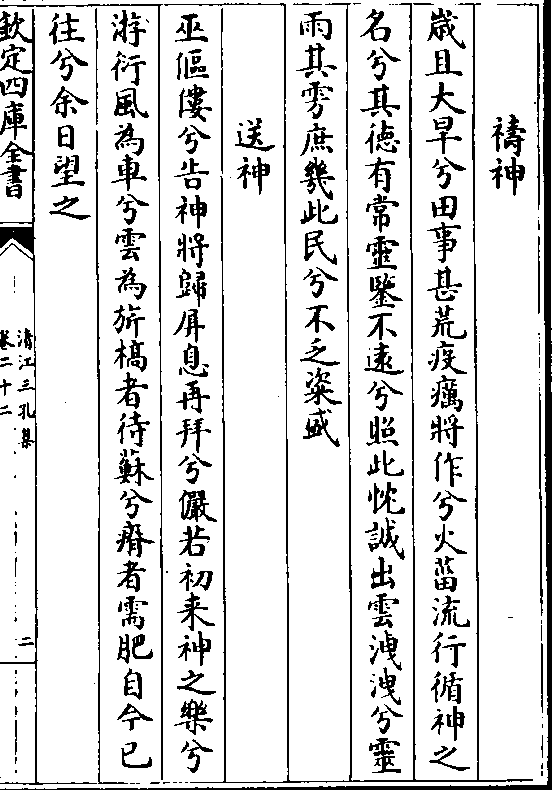 禱神
歳且大旱兮田事甚荒疫癘將作兮火菑流行循神之
名兮其德有常靈鑒不遠兮照此忱誠出雲洩洩兮靈
雨其雱庶幾此民兮不乏粢盛
送神
巫傴僂兮告神將歸屏息再拜兮儼若初来神之樂兮
游衍風為車兮雲為旂槁者待蘇兮瘠者需肥自今已
往兮余日望之
欽定四庫全書
清江三孔集
卷二十二
二